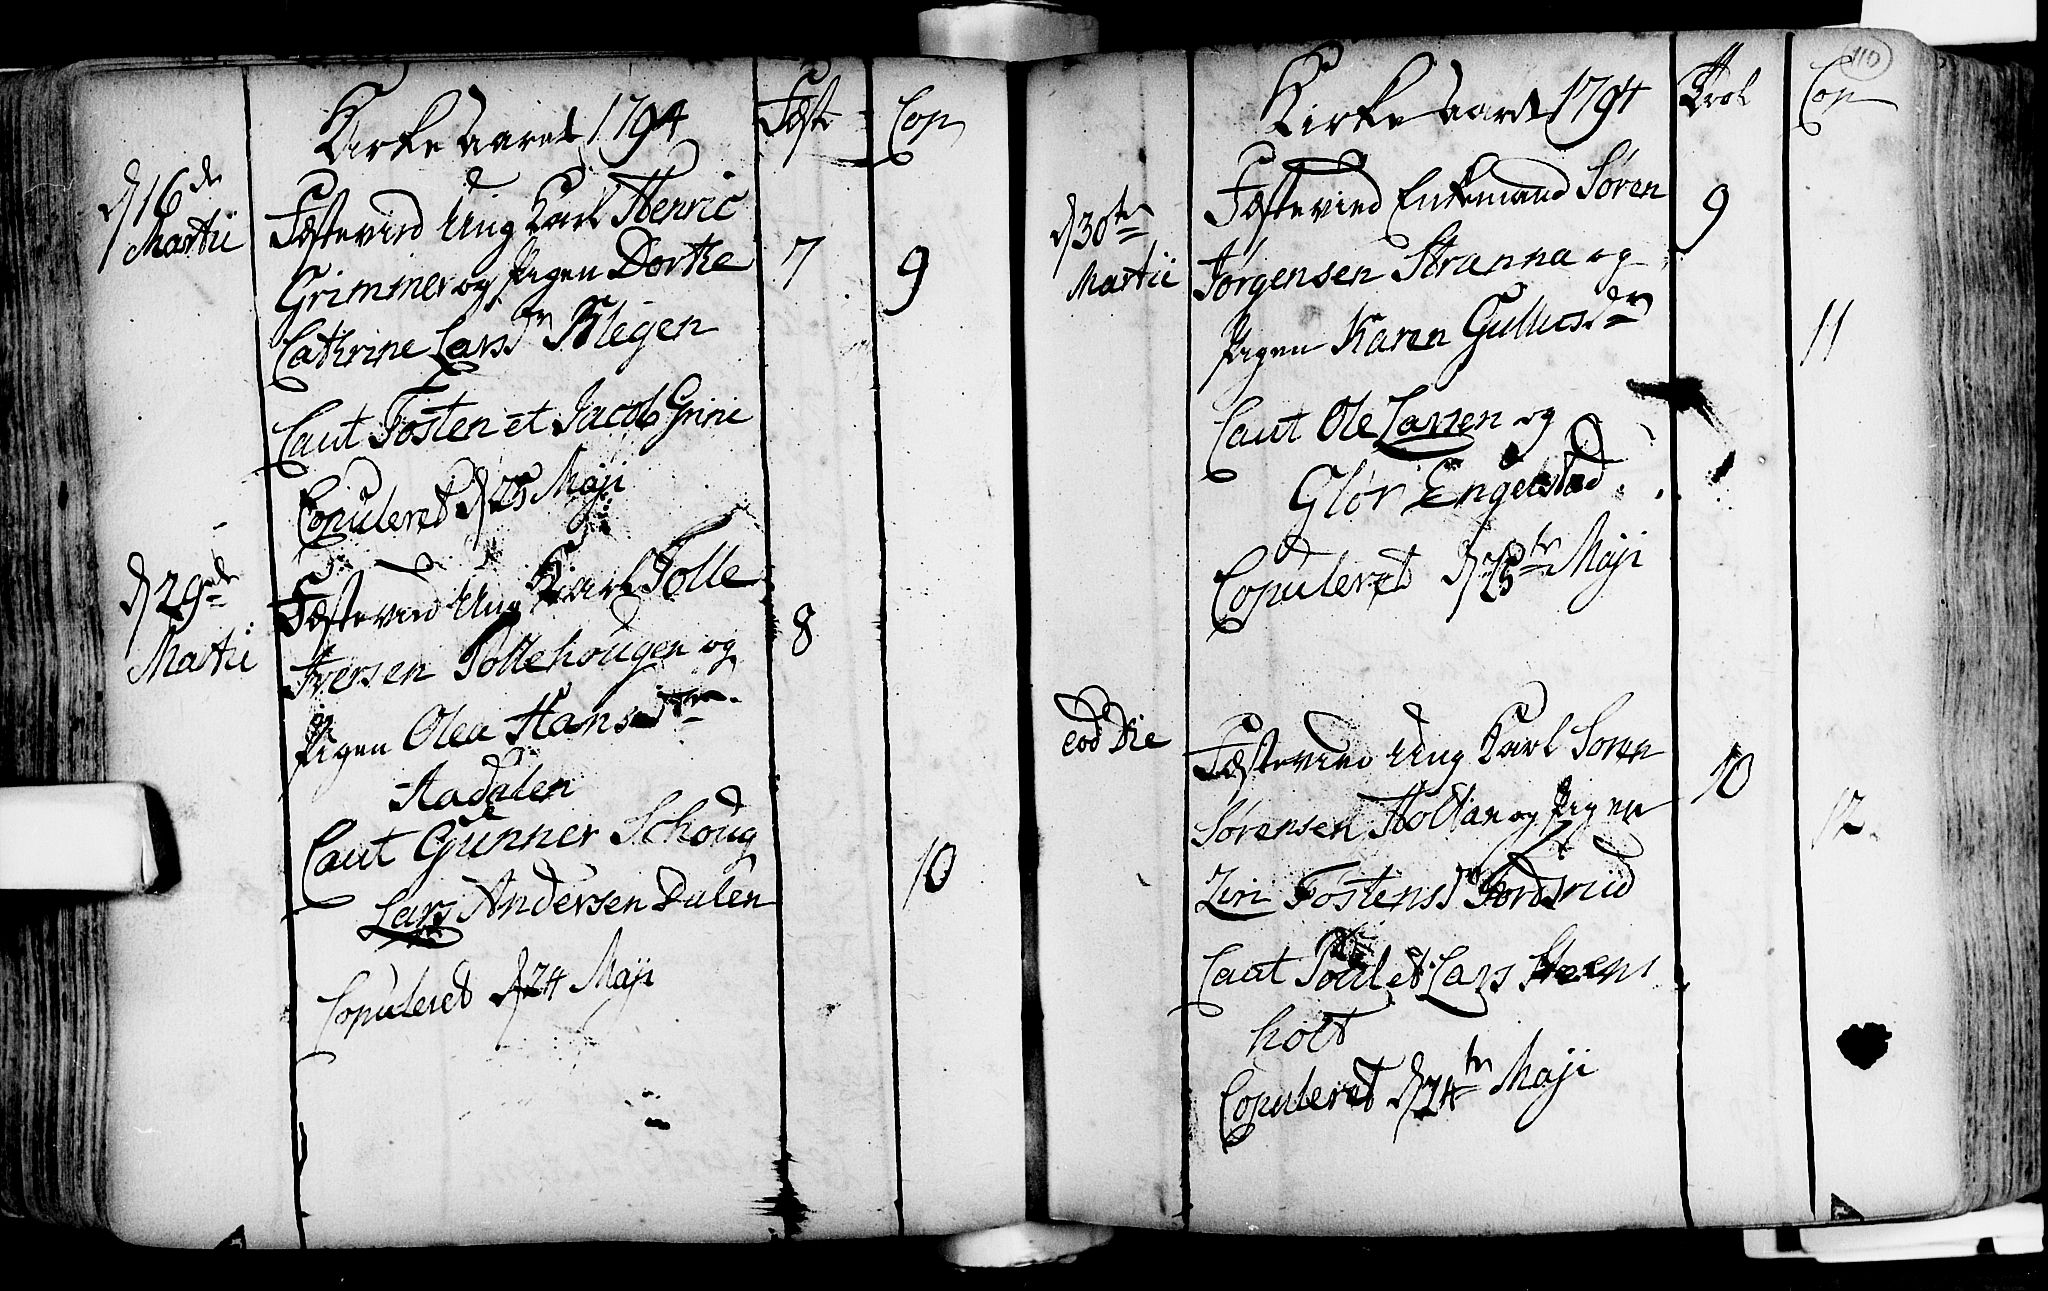 Kirke Aaret 1794
Fæst
Cop
d 16de
Martii
Fæsteviid Ung Karl Henric
Grimmer og Pigen Dorthe
7
9
Cathrine Larsdr Klegen
Caut Tosten et Jacob Grine
Copuleret d 25 Maji
d 29de
Martii
Fæsteviid Ung Karl Tolle
Iversen Tollehougen og
8
Pigen Olea Hansdtr
Aadalen
Caut Gunner Schoug
Lars Andersen Dalen
10
Copuleret d 24 Maji
110
Kirke Aaret 1794
Trol
Cop
d 30te
Martii
Fæsteviied Enkemand Søren
9
Jørgensen Stranna og
Pigen Karen Gullicsdr
11
Caut Ole Larsen og
Glør Engelstad
Copuleret d 25te Maji
eod Die
Fæsteviid Ung Karl Soren
10
Sørensen Holtan og Pigen
12
Ziri Tostensdr Fordsrud
Caut Poul et Lars Steens
holt
Copuleret d 24te Maji